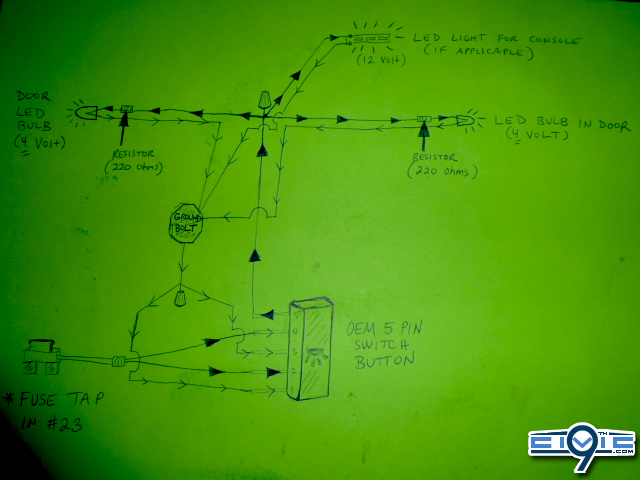 LED LIGHT FOR CONSOLE
(IF APPLICAPLE)
(12 Volt)
DOOR
LED
BULB
(4 Volt)
LED BULB IN DOOR
(4 VOLT)
RESISTOR
(220 Ohms)
RESISTOR
(220 Ohms)
GROUND
BOLT
5
4
3
2
1
OEM 5 PIN
SWITCH
BUTTON
* FUSE TAP
IN #23
9TH
CIVIC
.COM